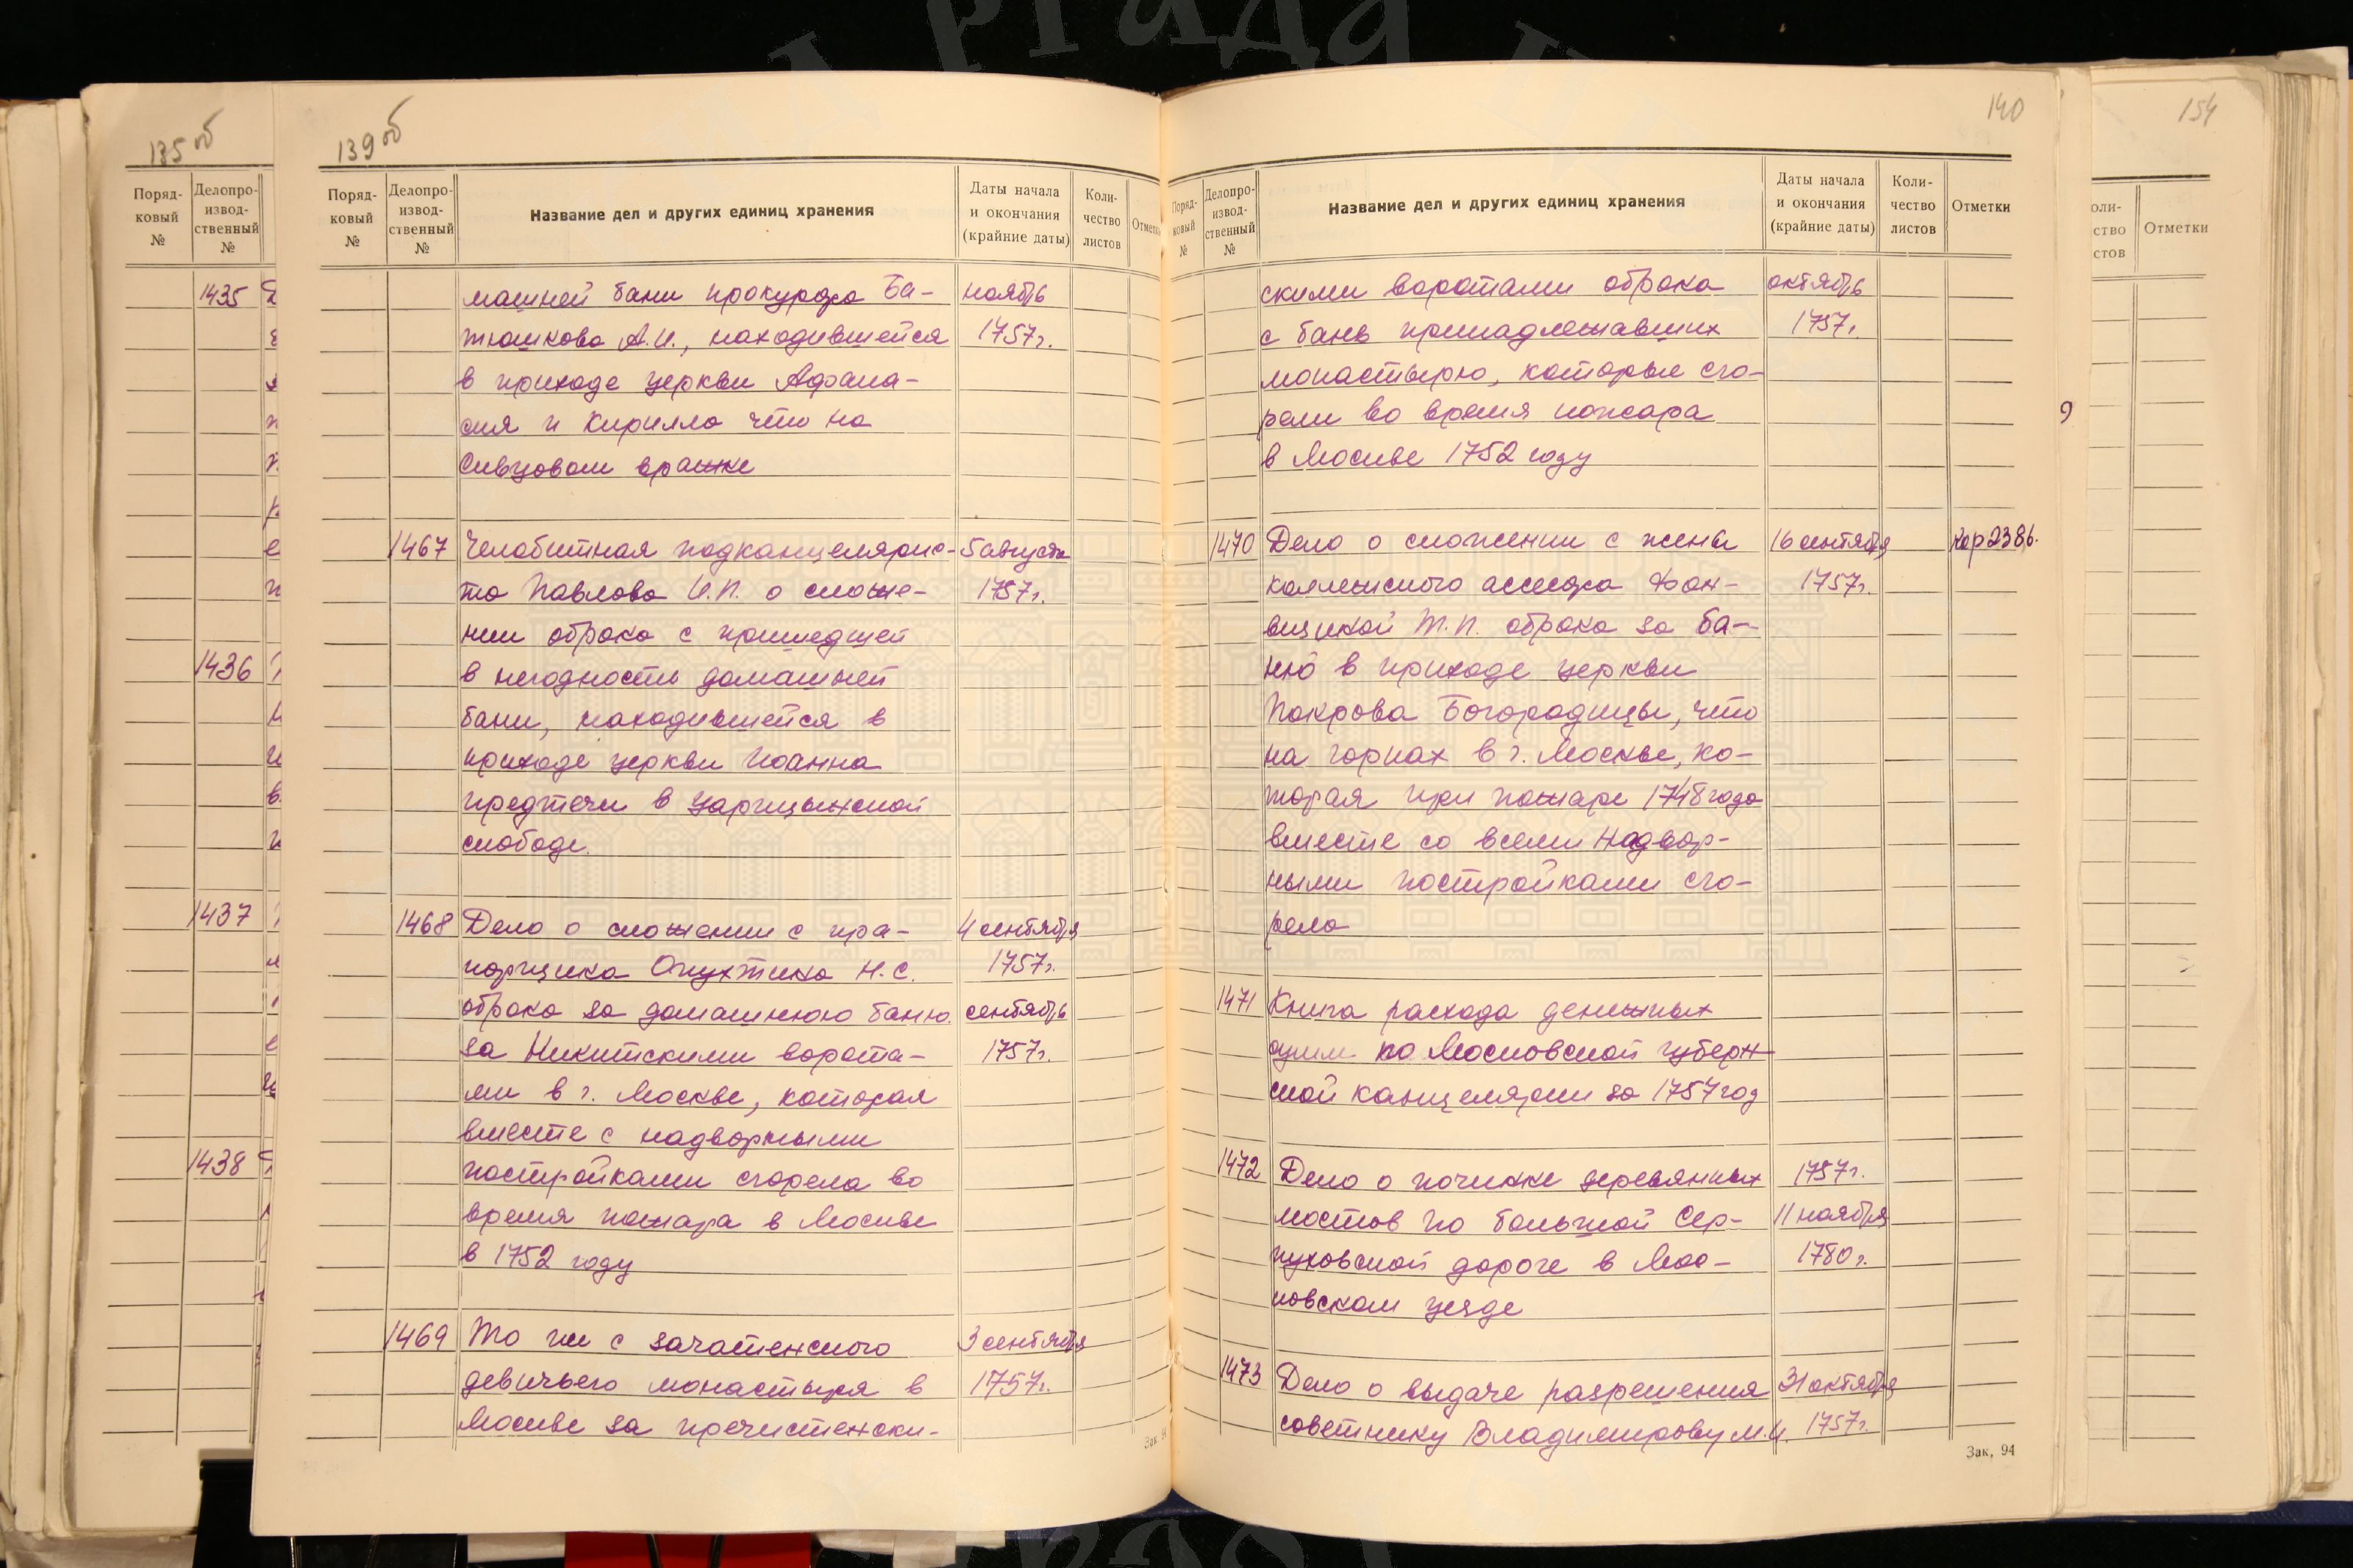 135 об
Поряд-
ковый
№
Делопро-
извод-
ственный
№
1435
1436
1437
1438
139 об
Поряд-
ковый
№
Делопро-
извод-
ственный
№
Название дел и других единиц хранения
Даты начала
и окончания
(крайние даты)
Коли-
чество
листов
Отметки
машней бани прокурора Ба- ноябрь
тюшкова А.И., находившейся 1757г.
в приходе церкви Афана-
сия и Кирилла что на
Сивцовом вражке
1467 Челобитная подканцелярис- 5 августа
та Павлова И.П. о сложе- 1757г.
нии оброка с пришедшей
в негодность домашней
бани, находившейся в
приходе церкви Иоанна
предтечи в Царицынской
слободе.
1468 Дело о сложении с пра- 4 сентября
порщика Опухтина Н.С. 1757г.
оброка за домашнюю баню. сентябрь
за Никитскими ворота- 1757г.
ми в г. Москве, которая
вместе с надворными
постройками сгорела во
время пожара в Москве
в 1752 году
1469 То же с зачатенского 3 сентября
девичьего монастыря в 1757г.
Москве за пречистенски-
Зак
140
Поряд-
ковый
№
Делопро-
извод-
ственный
№
Название дел и других единиц хранения
Даты начала
и окончания
(крайние даты)
Коли-
чество
листов
Отметки
скими воротами оброка октябрь
с бань принадлежавших 1757г.
монастырю, которые сго-
рели во время пожара
в Москве 1752 году
1470 Дело о сложении с жены 16 сентября кор 238б.
коллежского асессора Фон- 1757г.
вицикой Т.П. оброка за ба-
ню в приходе церкви
Покрова Богородицы, что
на горнах в г. Москве, ко-
торая при пожаре 1748 года
вместе со всеми надвор-
ными постройками сго-
рела
1471 Книга расхода денежных
сумм по Московской губерн
ской канцелярии за 1757 год
1472 Дело о починке деревянных 1757г.
мостов по большой Сер- 11 ноября
пуховской дороге в Мос- 1780г.
ковском уезде
1473 Дело о выдаче разрешения 31 октября
советнику Владимирову М.И. 1757г.
Зак, 94
154
оли-
ство
стов
Отметки